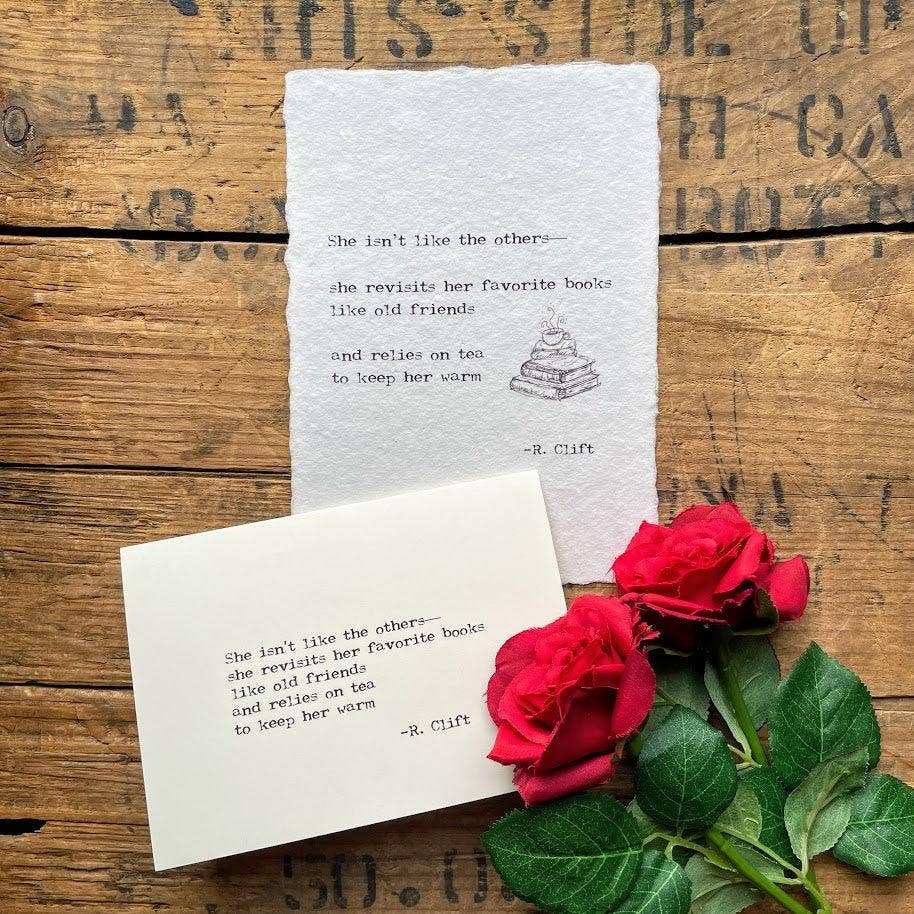 She isn't like the others—
she revisits her favorite books
like old friends
and relies on tea
to keep her warm
-R. Clift
She isn't like the others—
she revisits her favorite books
like old friends
and relies on tea
to keep her warm
-R. Clift